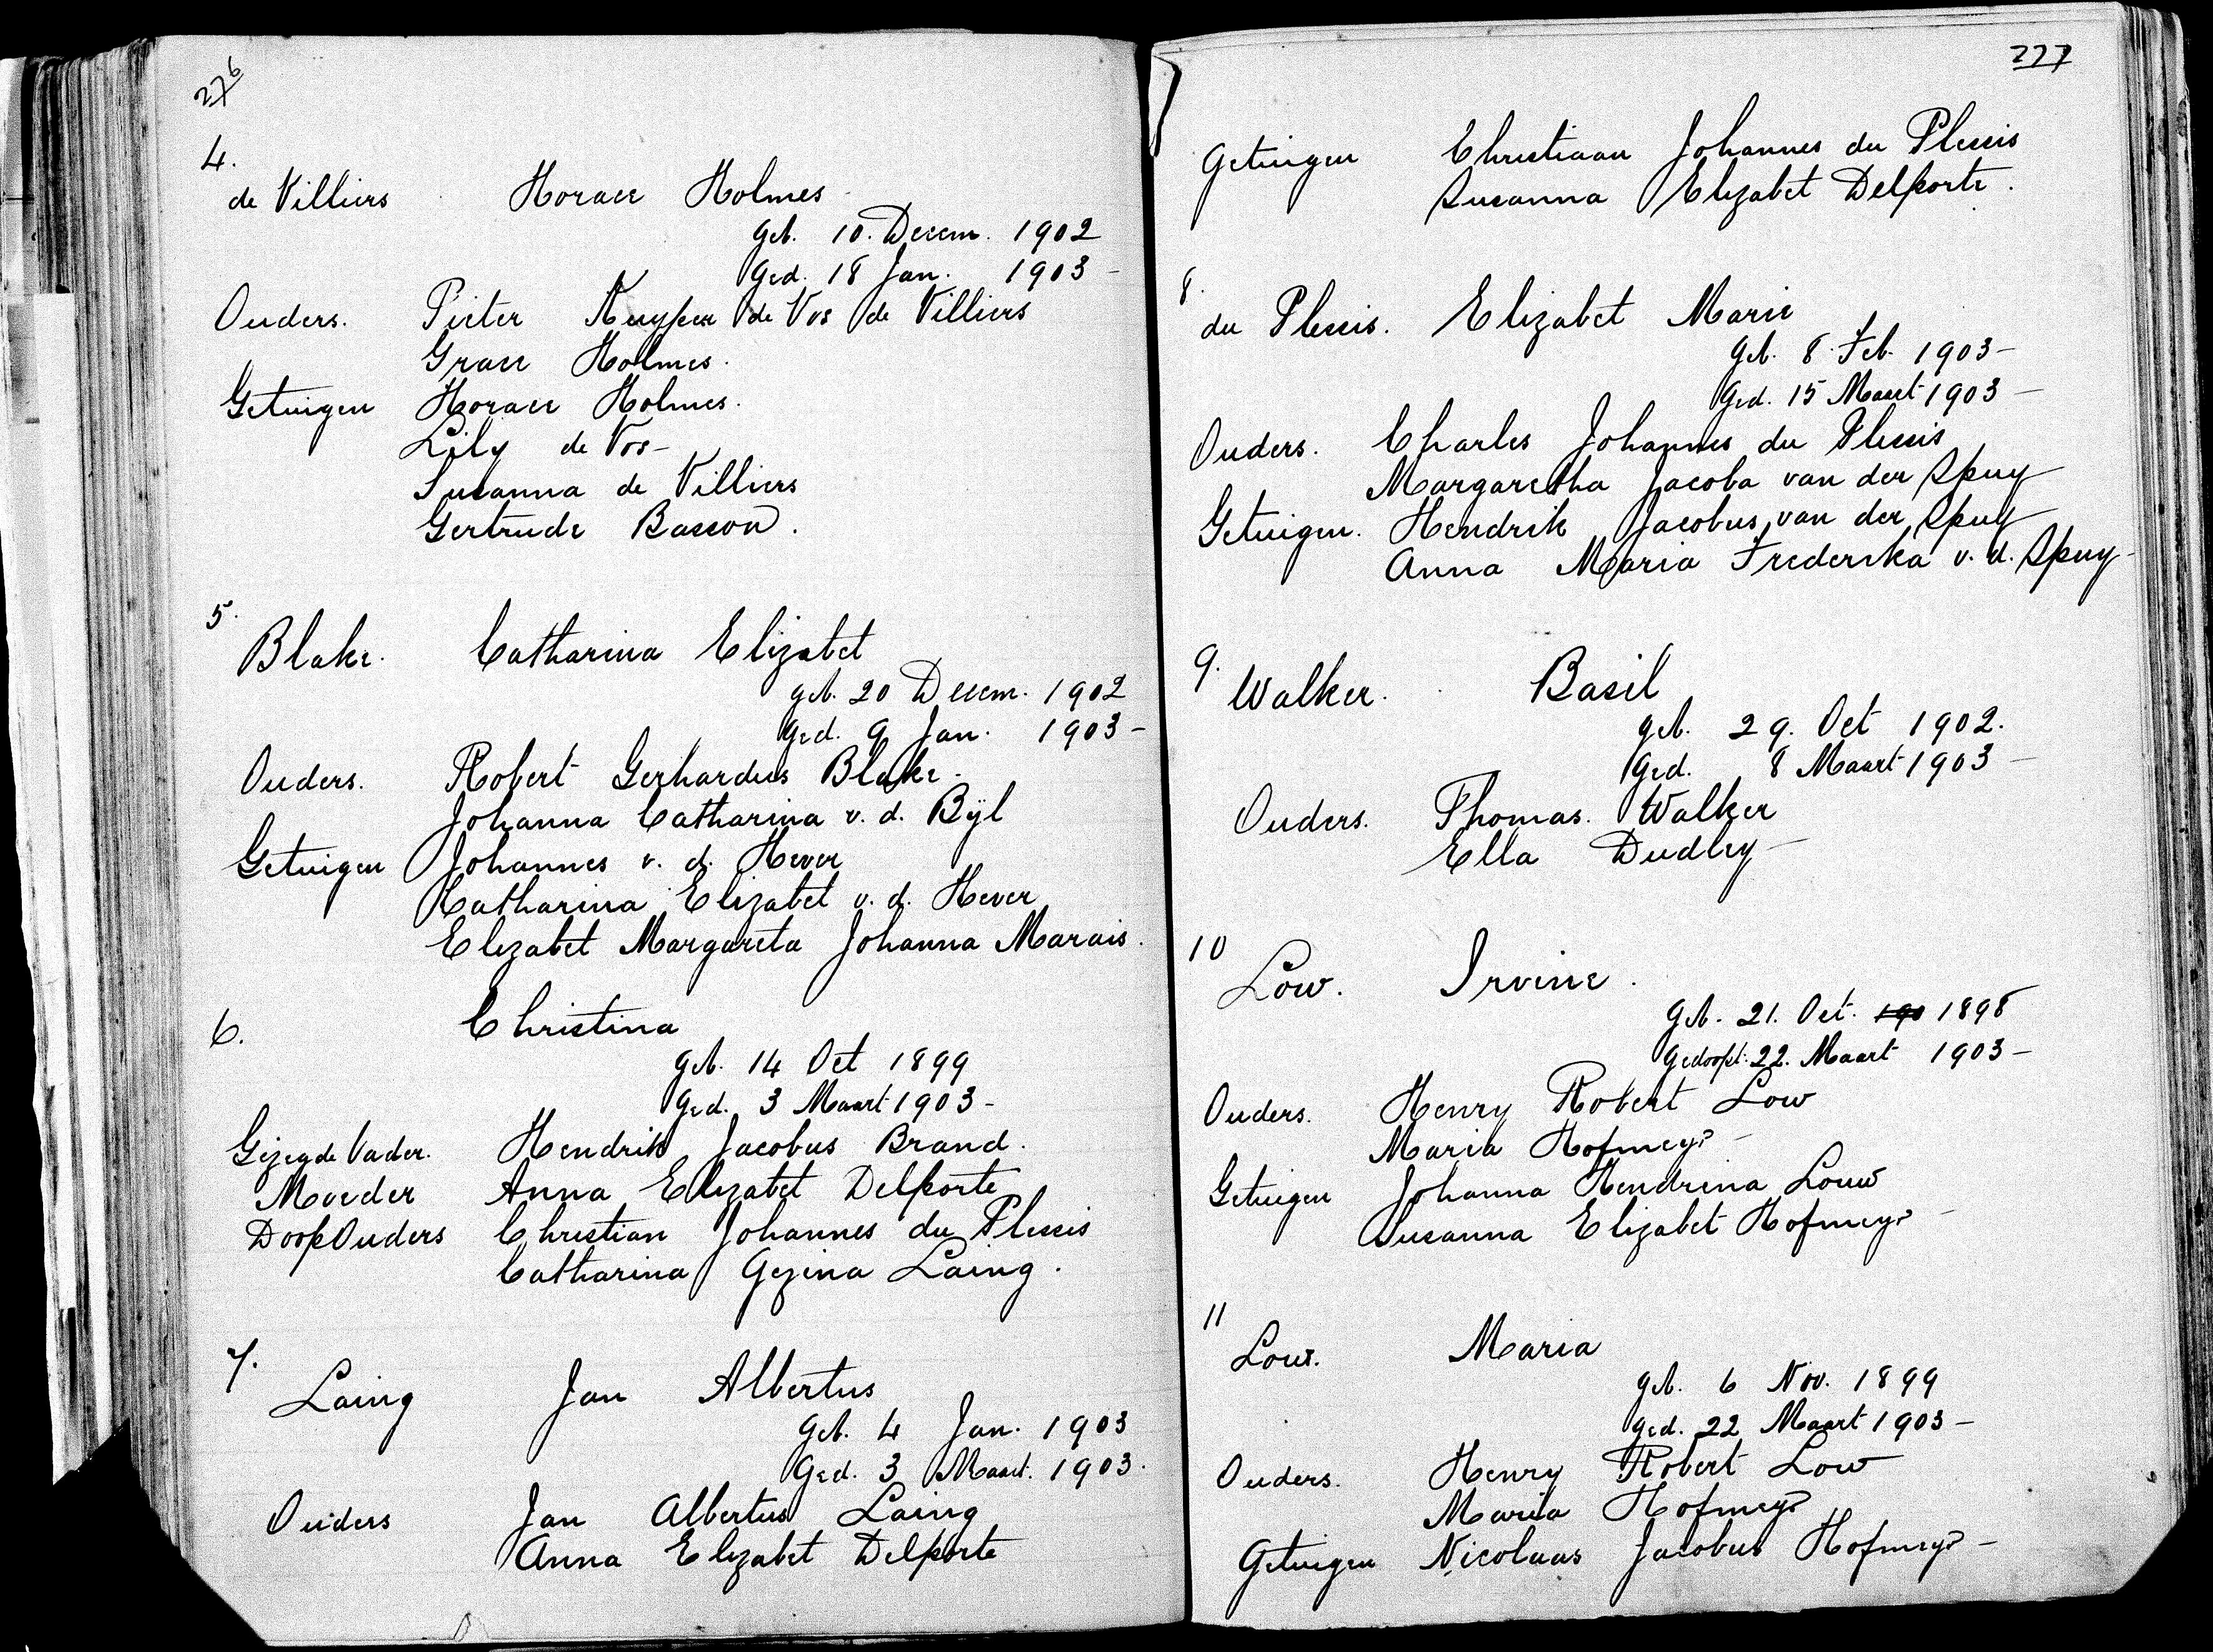 276
4.
de Villiers Horace Holmes
geb. 10. Decem. 1902
Ged. 18 Jan. 1903 -
Ouders. Pieter Kuyper de Vos de Villiers
Grace Holmes.
Getuigen Horace Holmes.
Lily de Vos -
Susanna de Villiers
Gertrude Basson.
5.
Blake. Catharina Elizabet
geb. 20 Decem. 1902
Ged. 9 Jan. 1903 -
Ouders. Robert Gerhardus Blake.
Johanna Catharina v. d. Bÿl
Getuigen Johannes v. d. Hever
Catharina Elizabet v. d. Hever
Elizabet Margareta Johanna Marais.
6. Christina
geb. 14 Oct 1899
Ged. 3 Maart 1903 -
Gezegde Vader. Hendrik Jacobus Brand.
Moeder Anna Elizabet Delporte
DoopOuders Christian Johannes du Plessis
Catharina Gezina Laing.
7.
Laing Jan Albertus
Geb. 4 Jan. 1903
Ged. 3 Maart. 1903.
Ouders Jan Albertus Laing
Anna Elizabet Delporte
277
Getuigen Christiaan Johannes du Plessis
Susanna Elizabet Delporte.
8.
du Plessis. Elizabet Marie
Geb. 8. Feb. 1903 -
Ged. 15 Maart 1903 -
Ouders. Charles Johannes du Plessis
Margaretha Jacoba van der Spuy
Getuigen. Hendrik Jacobus van der Spuy
Anna Maria Frederika v. d. Spuy -
9.
Walker. Basil
geb. 29. Oct 1902.
Ged. 8 Maart 1903 -
Ouders. Thomas. Walker
Ella Dudley -
10
Low. Irvine.
Geb. 21. Oct. 190 1898
Gedoopt: 22. Maart 1903 -
Ouders. Henry Robert Low
Maria Hofmeyr -
Getuigen Johanna Hendrina Louw
Susanna Elizabet Hofmeyr -
11
Low. Maria
geb. 6 Nov. 1899
ged. 22 Maart 1903 -
Ouders. Henry Robert Low
Maria Hofmeyr
Getuigen Nicolaas Jacobus Hofmeyr -